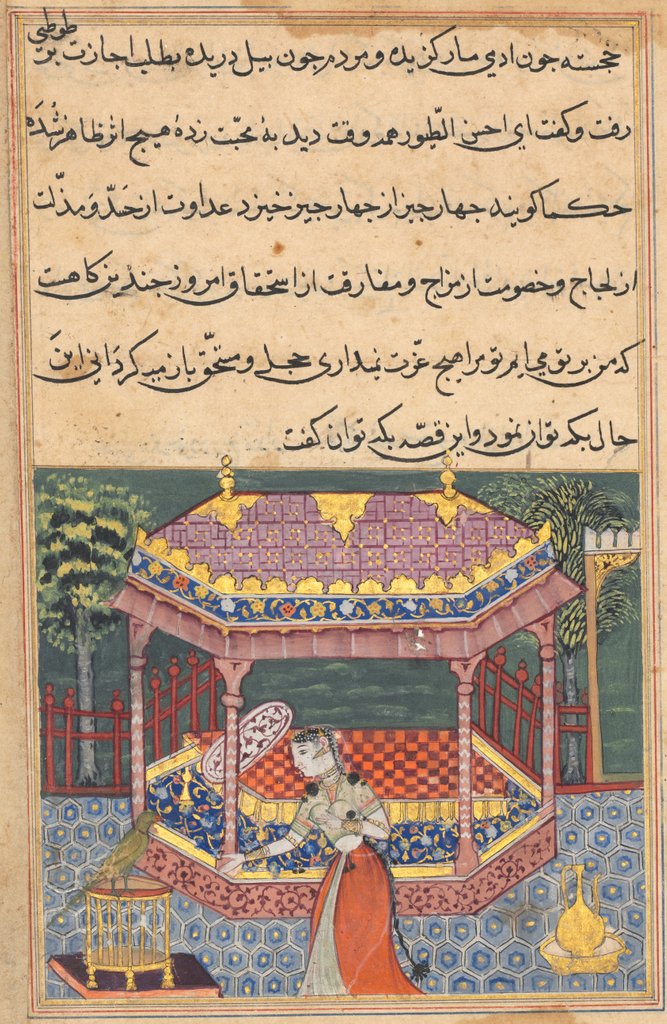 خجسته جون ادمي مار کزیده و مردم جون بیل دریده بطلب اجازت بر طوطی
رفت و کفت ای احسن الطّیور همه وقت دید بهٔ محبّت زدهٔ هیچ اثر ظاهر شُدَه
حکما کویند جهار جیز از جهار جیز خیزد عداوت از حَسَد وَ مذلّت
از لجاج و خصومت از مزاج و مفارقت از استحقاق امروز جندین کاهست
که من بر تو می ایم تو مرا هیچ عزّت نمیداری خجلے و مستخّق باز میکردَانی اینَ
حال بکه توان نمود و این قصّه بکه توان کفت